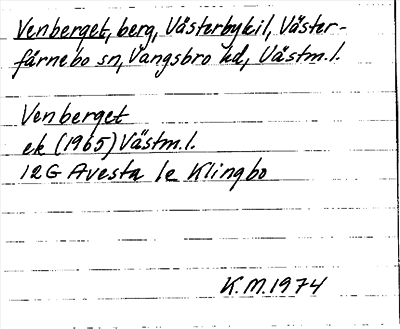 Venberget, berg, Västerbykil, Väster-
färnebo sn, Vangsbro hd, Västm.l.
Venberget
ek (1965) Västm.l.
12G Avesta 1e Klingbo
K.M.1974